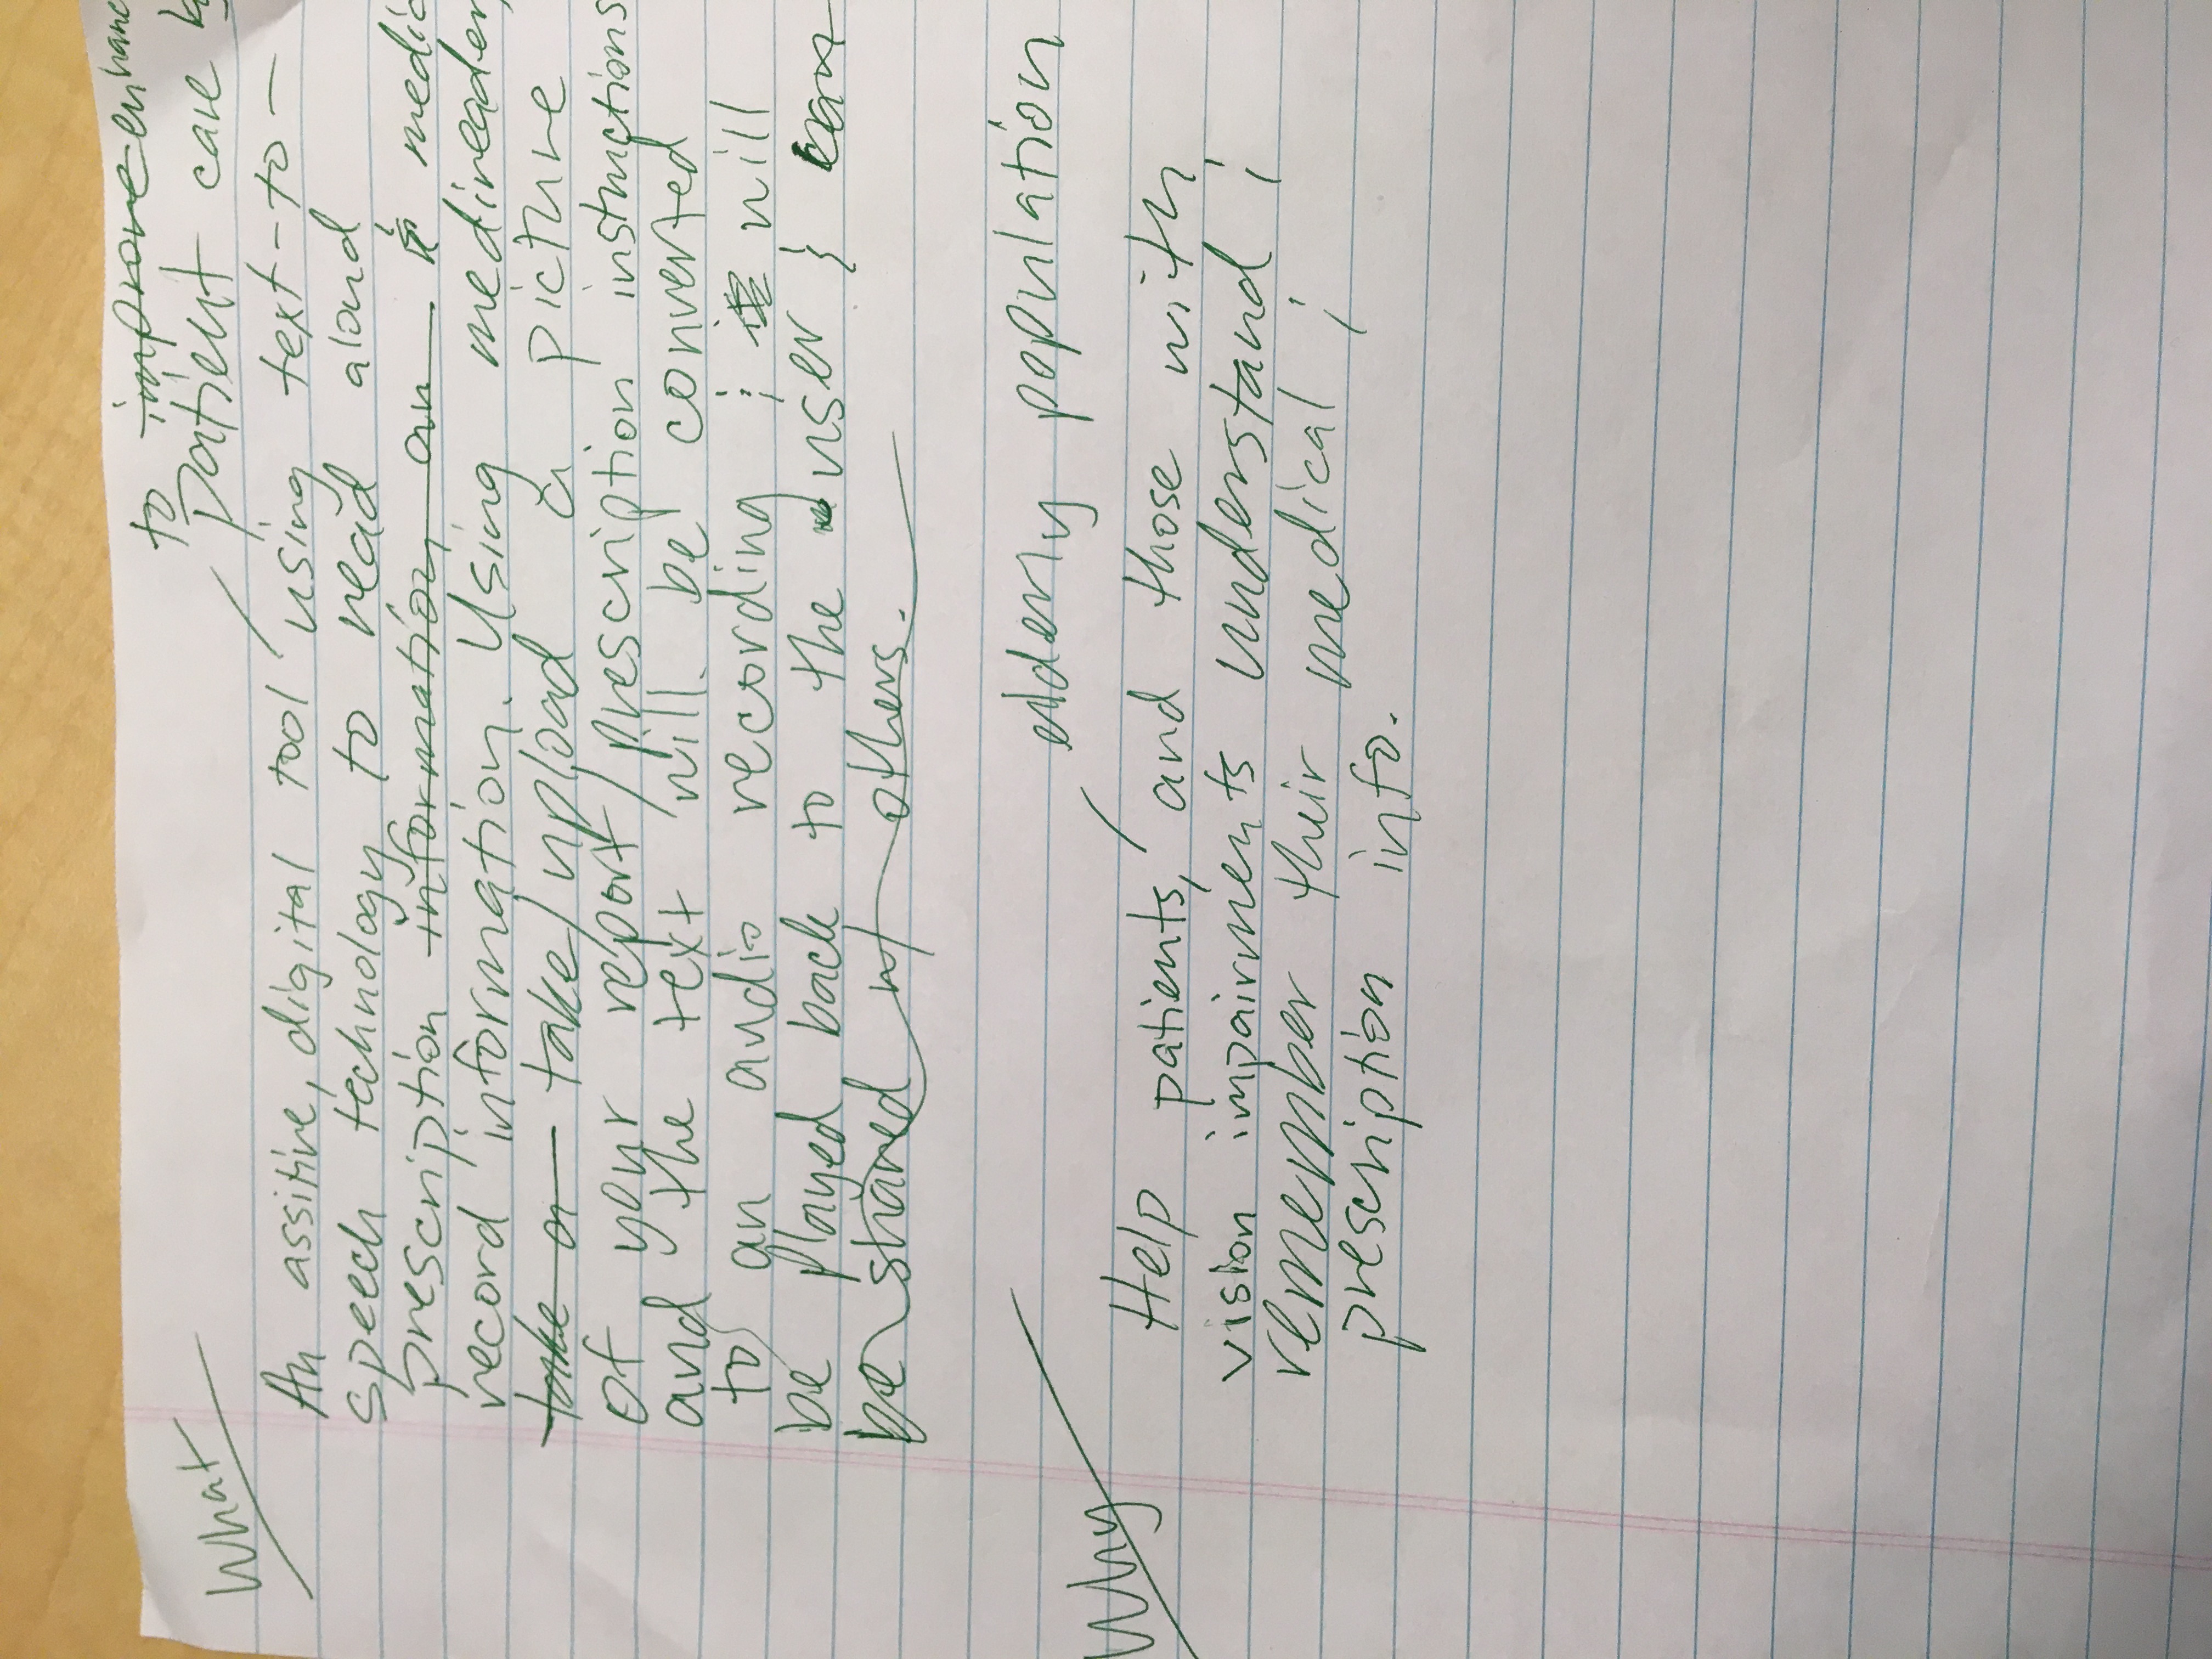 to improve enhanc
patient care
What
An assitive, digital tool using text-to-
speech technology to read aloud
prescription information an & medic
record information. Using medireader,
take a take/upload a picture
of your report/prescription instructions
and the text will be converted
to an audio recording & will
be played back to the user & can
be shared w/ others.
elderly population
Why
Help patients, and those with
vision impairments understand &
remember their medical &
prescription info.